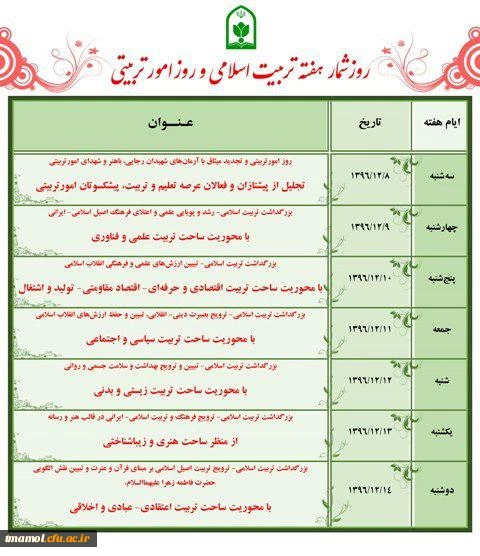 روزشمار هفته تربیت اسلامی و روز امور تربیتی
ایام هفته تاریخ عنـــوان
سه‌شنبه ۱۳۹۶/۱۲/۸ روز امورتربیتی و تجدید میثاق با آرمان‌های شهیدان رجایی، باهنر و شهدای امورتربیتی
تجلیل از پیشتازان و فعالان عرصه تعلیم و تربیت، پیشکسوتان امورتربیتی
چهارشنبه ۱۳۹۶/۱۲/۹ بزرگداشت تربیت اسلامی- رشد و پویایی علمی و اعتلای فرهنگ اصیل اسلامی- ایرانی
با محوریت ساحت تربیت علمی و فناوری
پنج‌شنبه ۱۳۹۶/۱۲/۱۰ بزرگداشت تربیت اسلامی- تبیین ارزش‌های علمی و فرهنگی انقلاب اسلامی
با محوریت ساحت تربیت اقتصادی و حرفه‌ای- اقتصاد مقاومتی- تولید و اشتغال
جمعه ۱۳۹۶/۱۲/۱۱ بزرگداشت تربیت اسلامی- ترویج بصیرت دینی- انقلابی، تبیین و حفظ ارزش‌های انقلاب اسلامی
با محوریت ساحت تربیت سیاسی و اجتماعی
شنبه ۱۳۹۶/۱۲/۱۲ بزرگداشت تربیت اسلامی- تبیین و ترویج بهداشت و سلامت جسمی و روانی
با محوریت ساحت تربیت زیستی و بدنی
یکشنبه ۱۳۹۶/۱۲/۱۳ بزرگداشت تربیت اسلامی- ترویج فرهنگ و تربیت اسلامی- ایرانی در قالب هنر و رسانه
از منظر ساحت هنری و زیباشناختی
دوشنبه ۱۳۹۶/۱۲/۱۴ بزرگداشت تربیت اسلامی- ترویج تربیت اصیل اسلامی بر مبنای قرآن و عترت و تبیین نقش الگویی
حضرت فاطمه زهرا علیهماالسلام،
با محوریت ساحت تربیت اعتقادی- عبادی و اخلاقی
tmamol.cfu.ac.ir